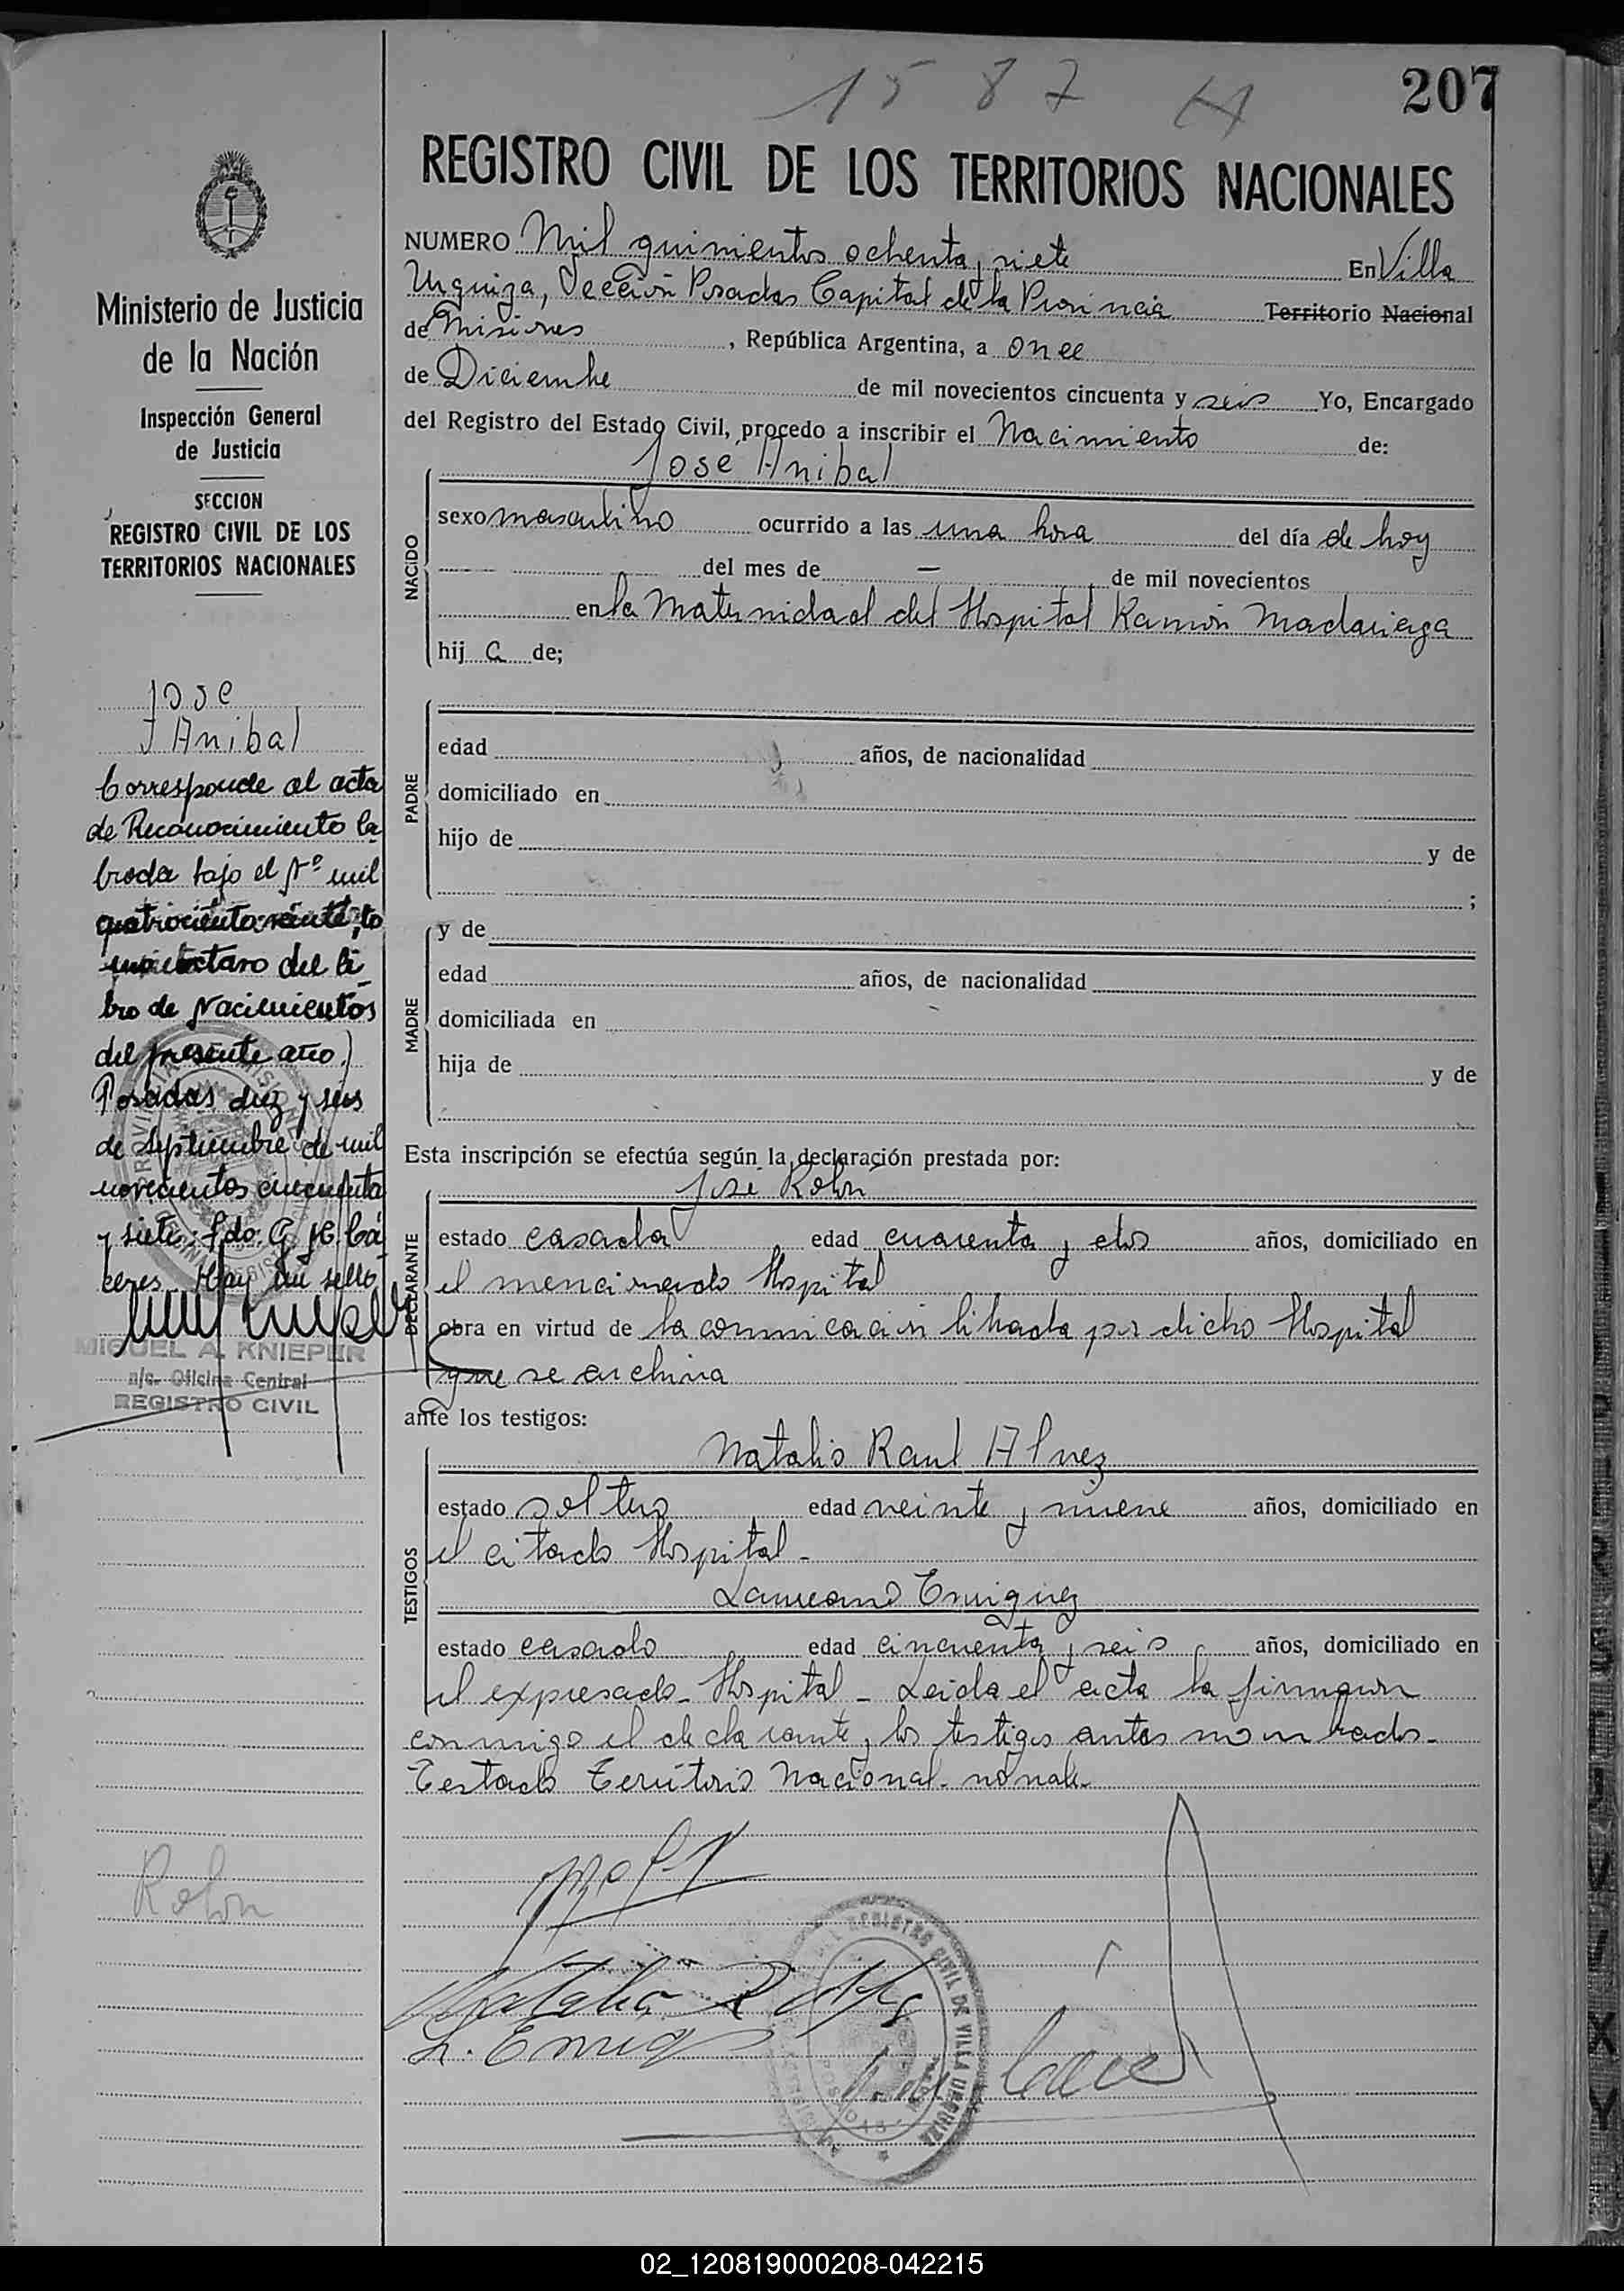 1587
207
REGISTRO CIVIL DE LOS TERRITORIOS NACIONALES
NUMERO Mil quinientos ochenta y siete En Villa
Urquiza, Sección Posadas Capital de la Provincia Territorio Nacional
de Misiones, República Argentina, a once
de Diciembre de mil novecientos cincuenta y seis Yo, Encargado
del Registro del Estado Civil, procedo a inscribir el Nacimiento de:
NACIDO
Jose Anibal
sexo masculino ocurrido a las una hora del día de hoy
del mes de — de mil novecientos
en la Maternidad del Hospital Ramón Madariaga
hij a de;
PADRE
edad años, de nacionalidad
domiciliado en
hijo de y de
;
MADRE
y de
edad años, de nacionalidad
domiciliada en
hija de y de
Esta inscripción se efectúa según la declaración prestada por:
DECLARANTE
José Rolón
estado casada edad cuarenta y dos años, domiciliado en
el mencionado Hospital
obra en virtud de la comunicación librada por dicho Hospital
que se archiva
ante los testigos:
TESTIGOS
Natalio Raul
estado soltero edad veinte y nueve años, domiciliado en
el citado Hospital -
Laureano Enriquez
estado casado edad cincuenta y seis años, domiciliado en
el expresado - Hospital - Leida el acta la firmaron
conmigo el declarante y los testigos antes nombrados -
Testado Territorio Nacional - no vale -
Natalio R
L. Enriq
REGISTRO CIVIL DE VILLA URQUIZA
POSADAS
Ministerio de Justicia
de la Nación
Inspección General
de Justicia
SECCION
REGISTRO CIVIL DE LOS
TERRITORIOS NACIONALES
Jose
Anibal
Corresponde al acta
de Reconocimiento la
brada bajo el Nº mil
quatrocientos veinte, to
mo octavo del li
bro de Nacimientos
del presente año)
Posadas diez y seis
de Septiembre de mil
novecientos cincuenta
y siete. Fdo. G. H. Cá
ceres. Hay un sello
MIGUEL A. KNIEPER
a/c. Oficina Central
REGISTRO CIVIL
Rolon
02_120819000208-042215